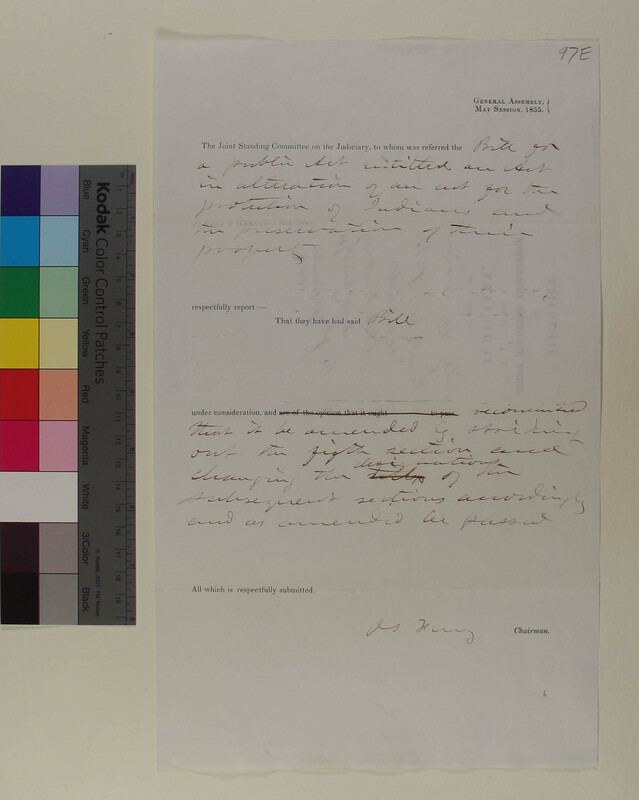 97E
GENERAL ASSEMBLY,
MAY SESSION, 1855.
The Joint Standing Committee on the Judiciary, to whom was referred the Bill for
a public Act intitled an Act
in alteration of an act for the
protection of Indians and
the preservation of their
property
respectfully report:—
That they have had said Bill
under consideration, and are of the opinion that it ought to pass recommend
that it be amended by striking
out the fifth section and
designations
changing the of the
subsequent sections accordingly
and as amended be passed
All which is respectfully submitted.
Chairman.
Kodak Color Control Patches
Blue
Cyan
Green
Yellow
Red
Magenta
White
3/Color
Black